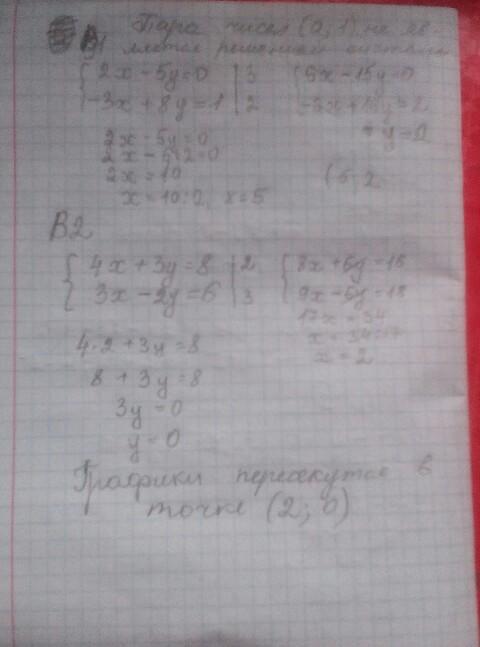 Пара чисел (0; 1) не яв-
ляется решением системы
{ 2x - 5y = 0 | 3 { 6x - 15y = 0
-3x + 8y = 1 | 2 -6x + 16y = 2
y = 2
2x - 5y = 0
2x - 5·2 = 0
2x = 10
x = 10:2, x = 5
(5; 2
B2
{ 4x + 3y = 8 | 2 { 8x + 6y = 16
3x - 2y = 6 | 3 9x - 6y = 18
17x = 34
x = 34:17
x = 2
4·2 + 3y = 8
8 + 3y = 8
3y = 0
y = 0
Графики пересекутся в
точке (2; 0)